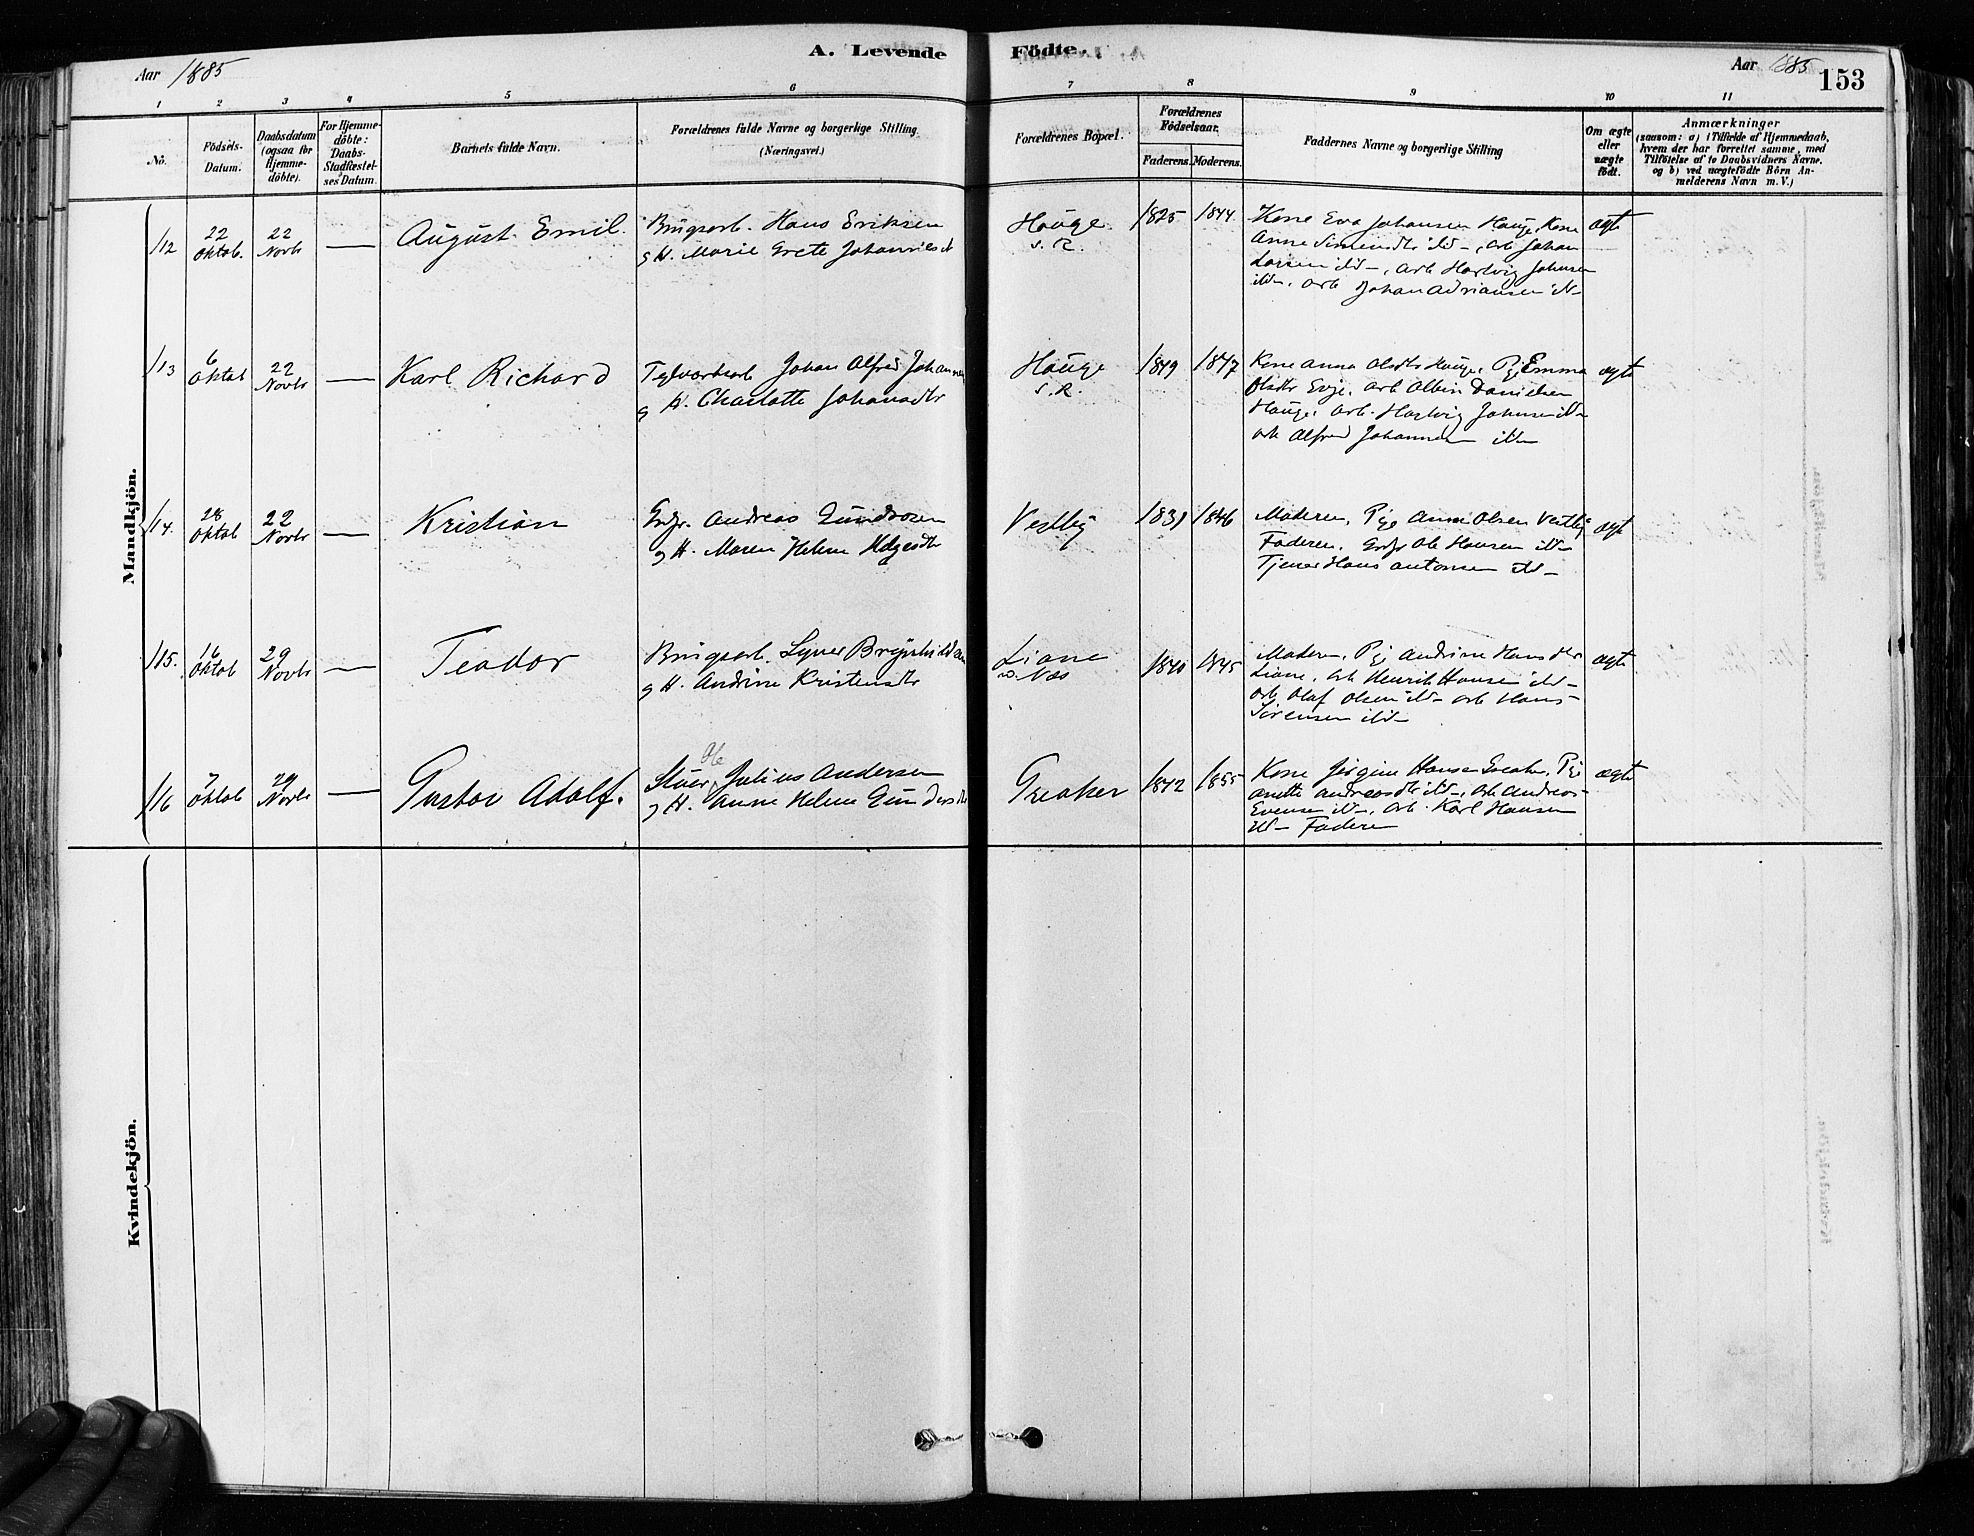 A. Levende Födte.
Aar 1885
Aar 1885
153
1 2 3 4 5 6 7 8 9 10 11
No.
Födsels-Datum.
Daabsdatum (ogsaa for Hjemme-döbte).
For Hjemme-döbte: Daabs-Stadfæstel-ses Datum.
Barnets fulde Navn.
Forældrenes fulde Navne og borgerlige Stilling.
(Næringsvei.)
Forældrenes Bopæl.
Forældrenes Födselsaar.
Faderens. Moderens.
Faddernes Navne og borgerlige Stilling
Om ægte eller uægte födt.
Anmærkninger
(saasom: a) i Tilfælde af Hjemmedaab,
hvem der har forrettet samme, med
Tilföielse af to Daabsvidners Navne.
og b) ved uægtefödte Börn An-
melderens Navn m. V.)
Mandkjön.
112 22 Oktob. 22 Novbr — August Emil.
Brugsarb. Hans Eriksen
g H. Marie Grete Johannesdt
Hauge
s. R.
1825 1844
Kone Eva Johansen Hauge, Kone
Anne Simensdtr ibd–, arb Johan
Larsen ibd–, arb Hartvig Johnsen
ibd–, arb Johan Adriansen ibd–
ægte
113 6 Oktob 22 Novbr — Karl Richard
Teglværksarb Johan Alfred Johannesen
g H. Charlotte Johansdtr
Hauge
s. R.
1849 1847
Kone Anna Olsdtr Hauge, Pige Emma
Olsdtr Evje, arb Albin Danielsen
Hauge, arb. Hartvig Johnsen ibd–
arb Alfred Johannesen ibd–
ægte
114. 28 Oktob 22 Novbr — Kristian
Grdr. Andreas Gundersen
g H. Maren Helene Helgesdtr
Vestby
1839 1846
Moderen, Pige Anne Olsen Vestby
Faderen, Grdr Ole Hansen ibd–
Tjener Hans Antonsen ibd–
ægte
115. 16 Oktob 29 Novbr — Teodor
Brugsarb. Syver Brynhildsen
g H. Andrine Kristensdtr
Liane
u. Næs
1840 1845
Moderen, Pige Andrine Hansdtr
Liane, arb Henrik Hansen ibd–
arb Olaf Olsen ibd– arb Hans
Sörensen ibd–
ægte
116 7 Oktob 29 Novbr — Gustav Adolf.
Ole
Stuer Julius Andersen
g H. Anne Helene Gundersdtr
Greaker
1842 1855
Kone Jörgine Hansen Greaker, Pige
Anette Andreasdtr ibd–, arb Andreas
Evensen ibd–, arb. Karl Hansen
ibd– Faderen
ægte
Kvindekjön.